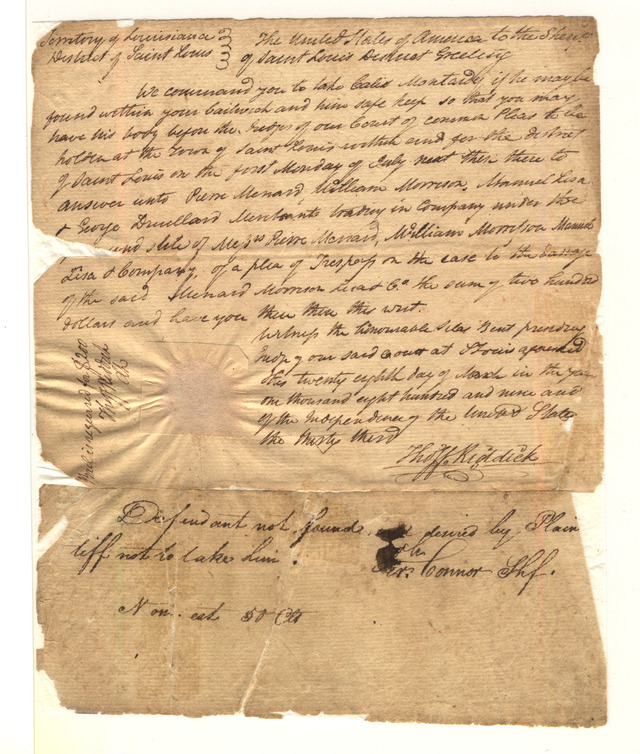 Territory of Louisiana
District of Saint Louis
The United States of America to the Sheriff
of Saint Louis District Greeting
We command you to take Calis Montard if he may be
found within your bailiwick and him safe keep so that you may
have his body before the Judges of our Court of common Pleas to be
holden at the Town of Saint Louis within and for the district
of Saint Louis on the first Monday of July next then there to
answer unto Pierre Menard, William Morrison, Manuel Lisa
& George Druillard Merchants trading in Company under the
and stile of Messrs Pierre Menard, William Morrison Manuel
Lisa & Company, of a plea of Trespass on the case to the damage
of the said Menard Morrison Lisa & Co the sum of two hundred
dollars and have you then there this writ.
Witness the honourable Silas Bent presiding
Judge of our said Court at St Louis aforesaid
this twenty eighth day of March in the Year
one thousand eight hundred and nine and
of the Independence of the United States
the thirty third
Tho. F. Riddick
Bail is required for $200
Tho F Riddick
Clk
Defendant not found and desired by Plain
tiff not to take him
Jer. Connor Shf.
Non est 50 Cts